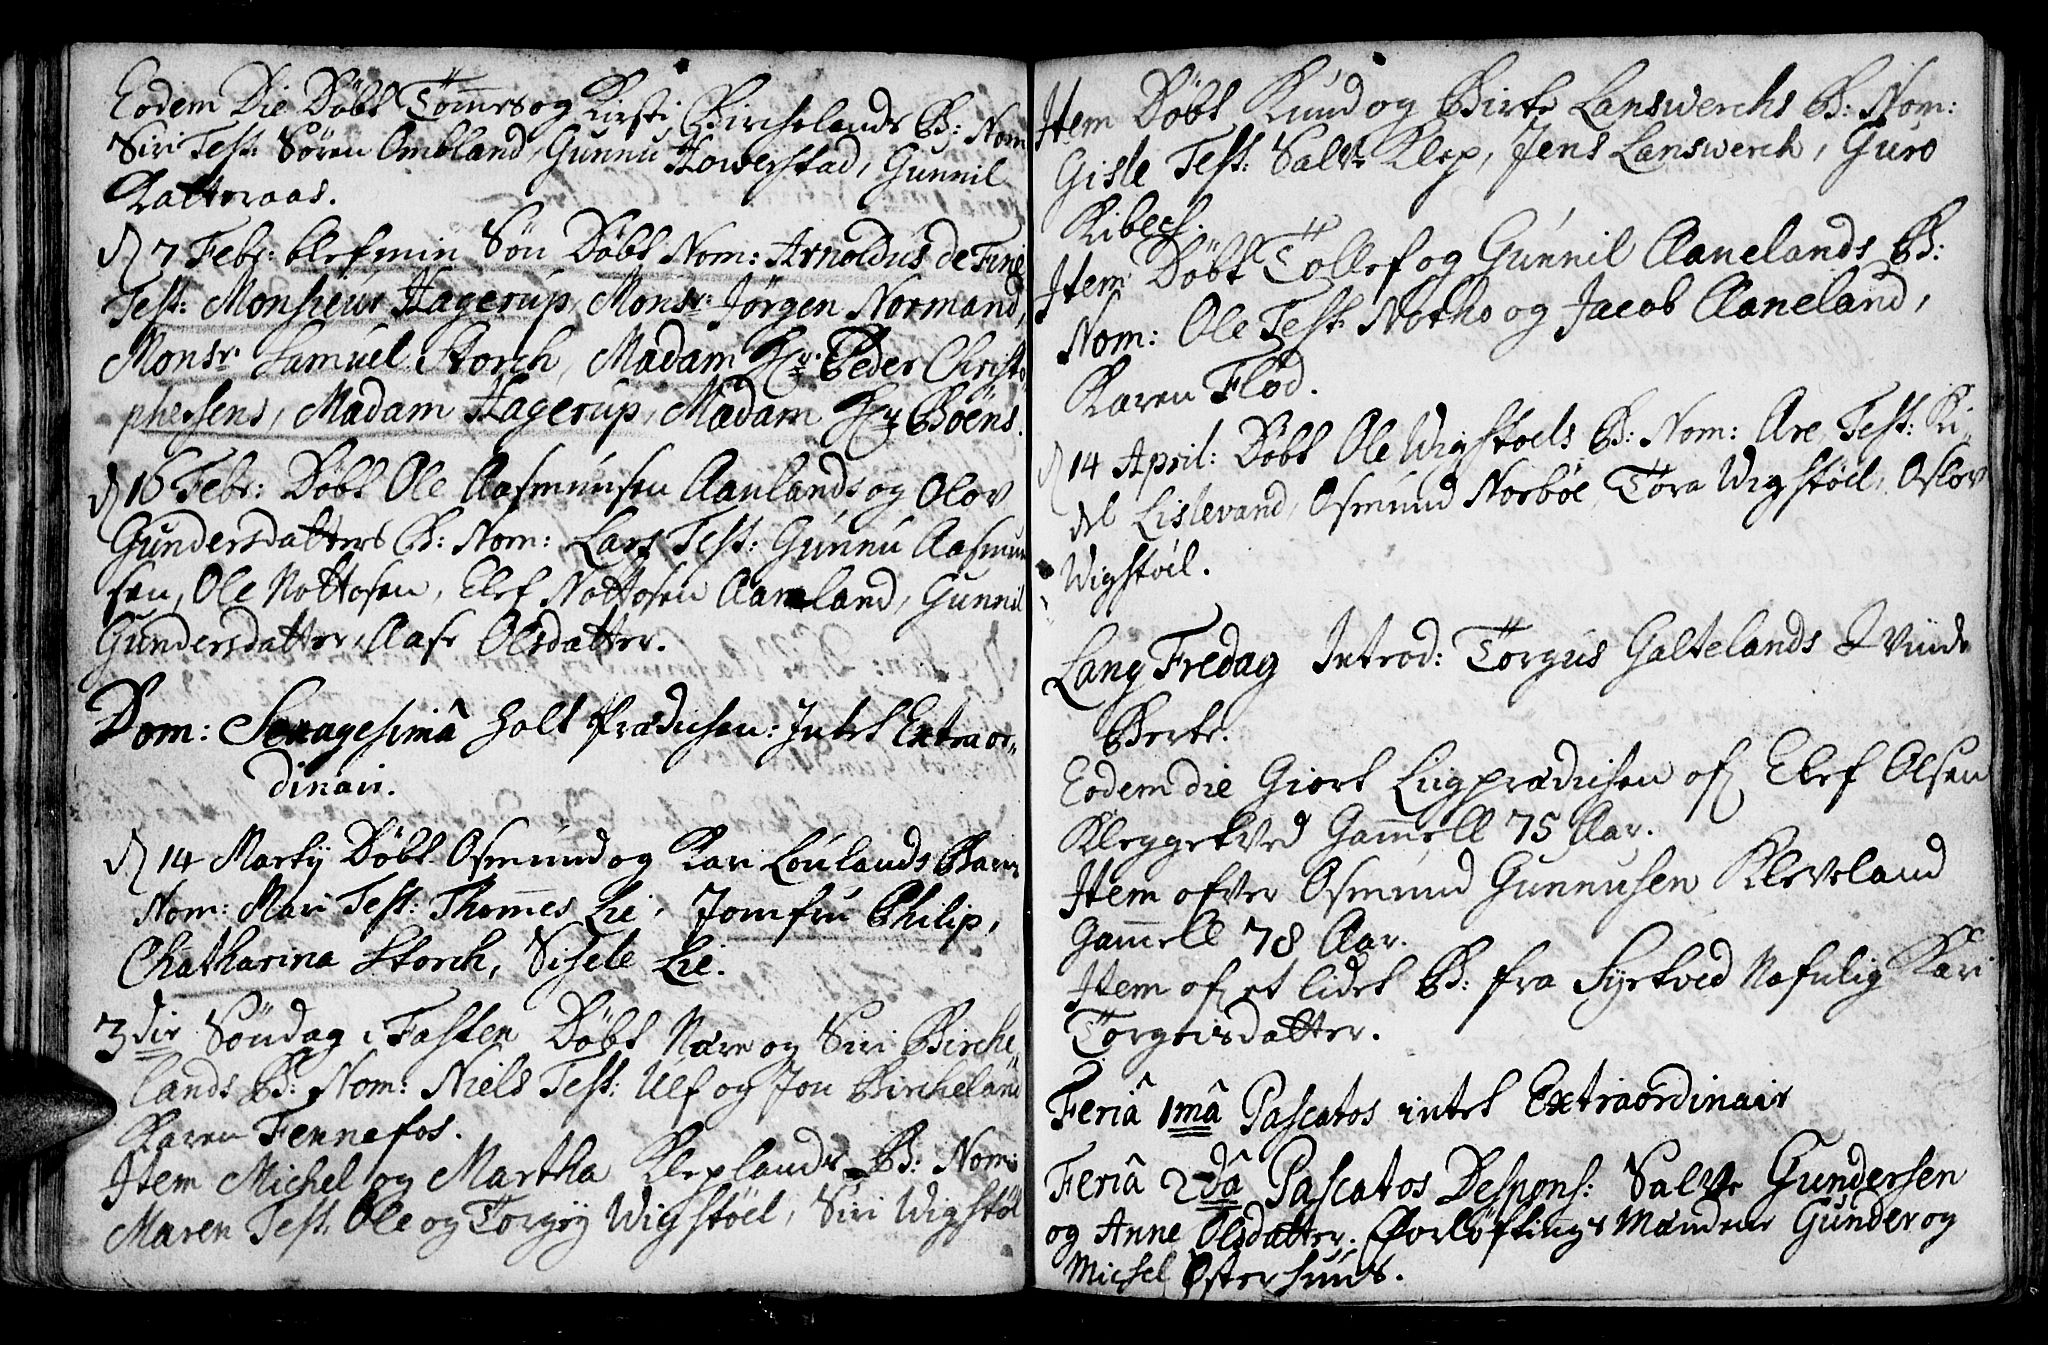 Eodem Die Döbt Tom̄es og Kirsti Birchelands B: Nom
Siri Test: Sören Ombland, Gunnu Howerstad, Gunnil
Katteraas.
d 7 Febr: blef min Sön Döbt Nom: Arnoldus de Fine
Test: Monsieur Hagerup, Monsr: Jörgen Normand,
Monsr: Samuel Storch, Madam Hr: Peder Christo
phersens, Madam Hagerup, Madam Hr Böens.
d 16 Febr: Döbt Ole Aasmunsen Aanlands og Olov
Gundersdatters B: Nom: Lars Test: Gunnu Aasmun
sen, Ole Nottosen, Elef Nottosen Aaneland, Gunnil
Gundersdatter, Aase Olsdatter.
Dom: Sexagesimâ holt Prædichen: Intet Extraor-
dinair.
d 14 Martij Döbt Osmund og Kari Loulands Barn
Nom: Mari Test: Thom̄es Lie, Jomfru Philip,
Chatharina Storch, Sisele Lie.
3die Söndag i Fasten Döbt Nære og Siri Birche-
lands B: Nom: Niels Test: Ulf og Jon Bircheland
Karen Fennefos.
Item Michel og Martha Kleplands B: Nom:
Maren Test: Ole og Torgej Wigstöel, Siri Wigstöl
Item Döbt Knud og Birte Lanswerchs B: Nom:
Gisle Test: Salve Klep, Jens Lanswerch, Guro
Kibech.
Item Döbt Tollef og Gunnil Aanelands B:
Nom: Ole Test: Notho og Jacob Aaneland,
Karen Flod.
d 14 April: Döbt Ole Wigstoels B: Nom: Are, Test: Ki
del Lislevand, Osmund Norböe, Tora Wigstöel, Oslov
Wigstöel.
Lang Fredag Introd: Torgus Galtelands Qvinde
Berte.
Eodem die Giort Ligprædichen of Elef Olsen
Kleggetved Gam̄ell 75 Aar.
Item ofver Osmund Gunnusen Kleveland
Gam̄ell 78 Aar.
Item of et lidet B: fra Syrtved Nafnlig Kari
Torgeisdatter.
Feriâ 1mâ Pascatos intet Extraordinair
Feriâ 2dâ Pascatos Despons: Salve Gundersen
og Anne Olsdatter. Forlöftings Mændene Gunder og
Michel Østerhuus.